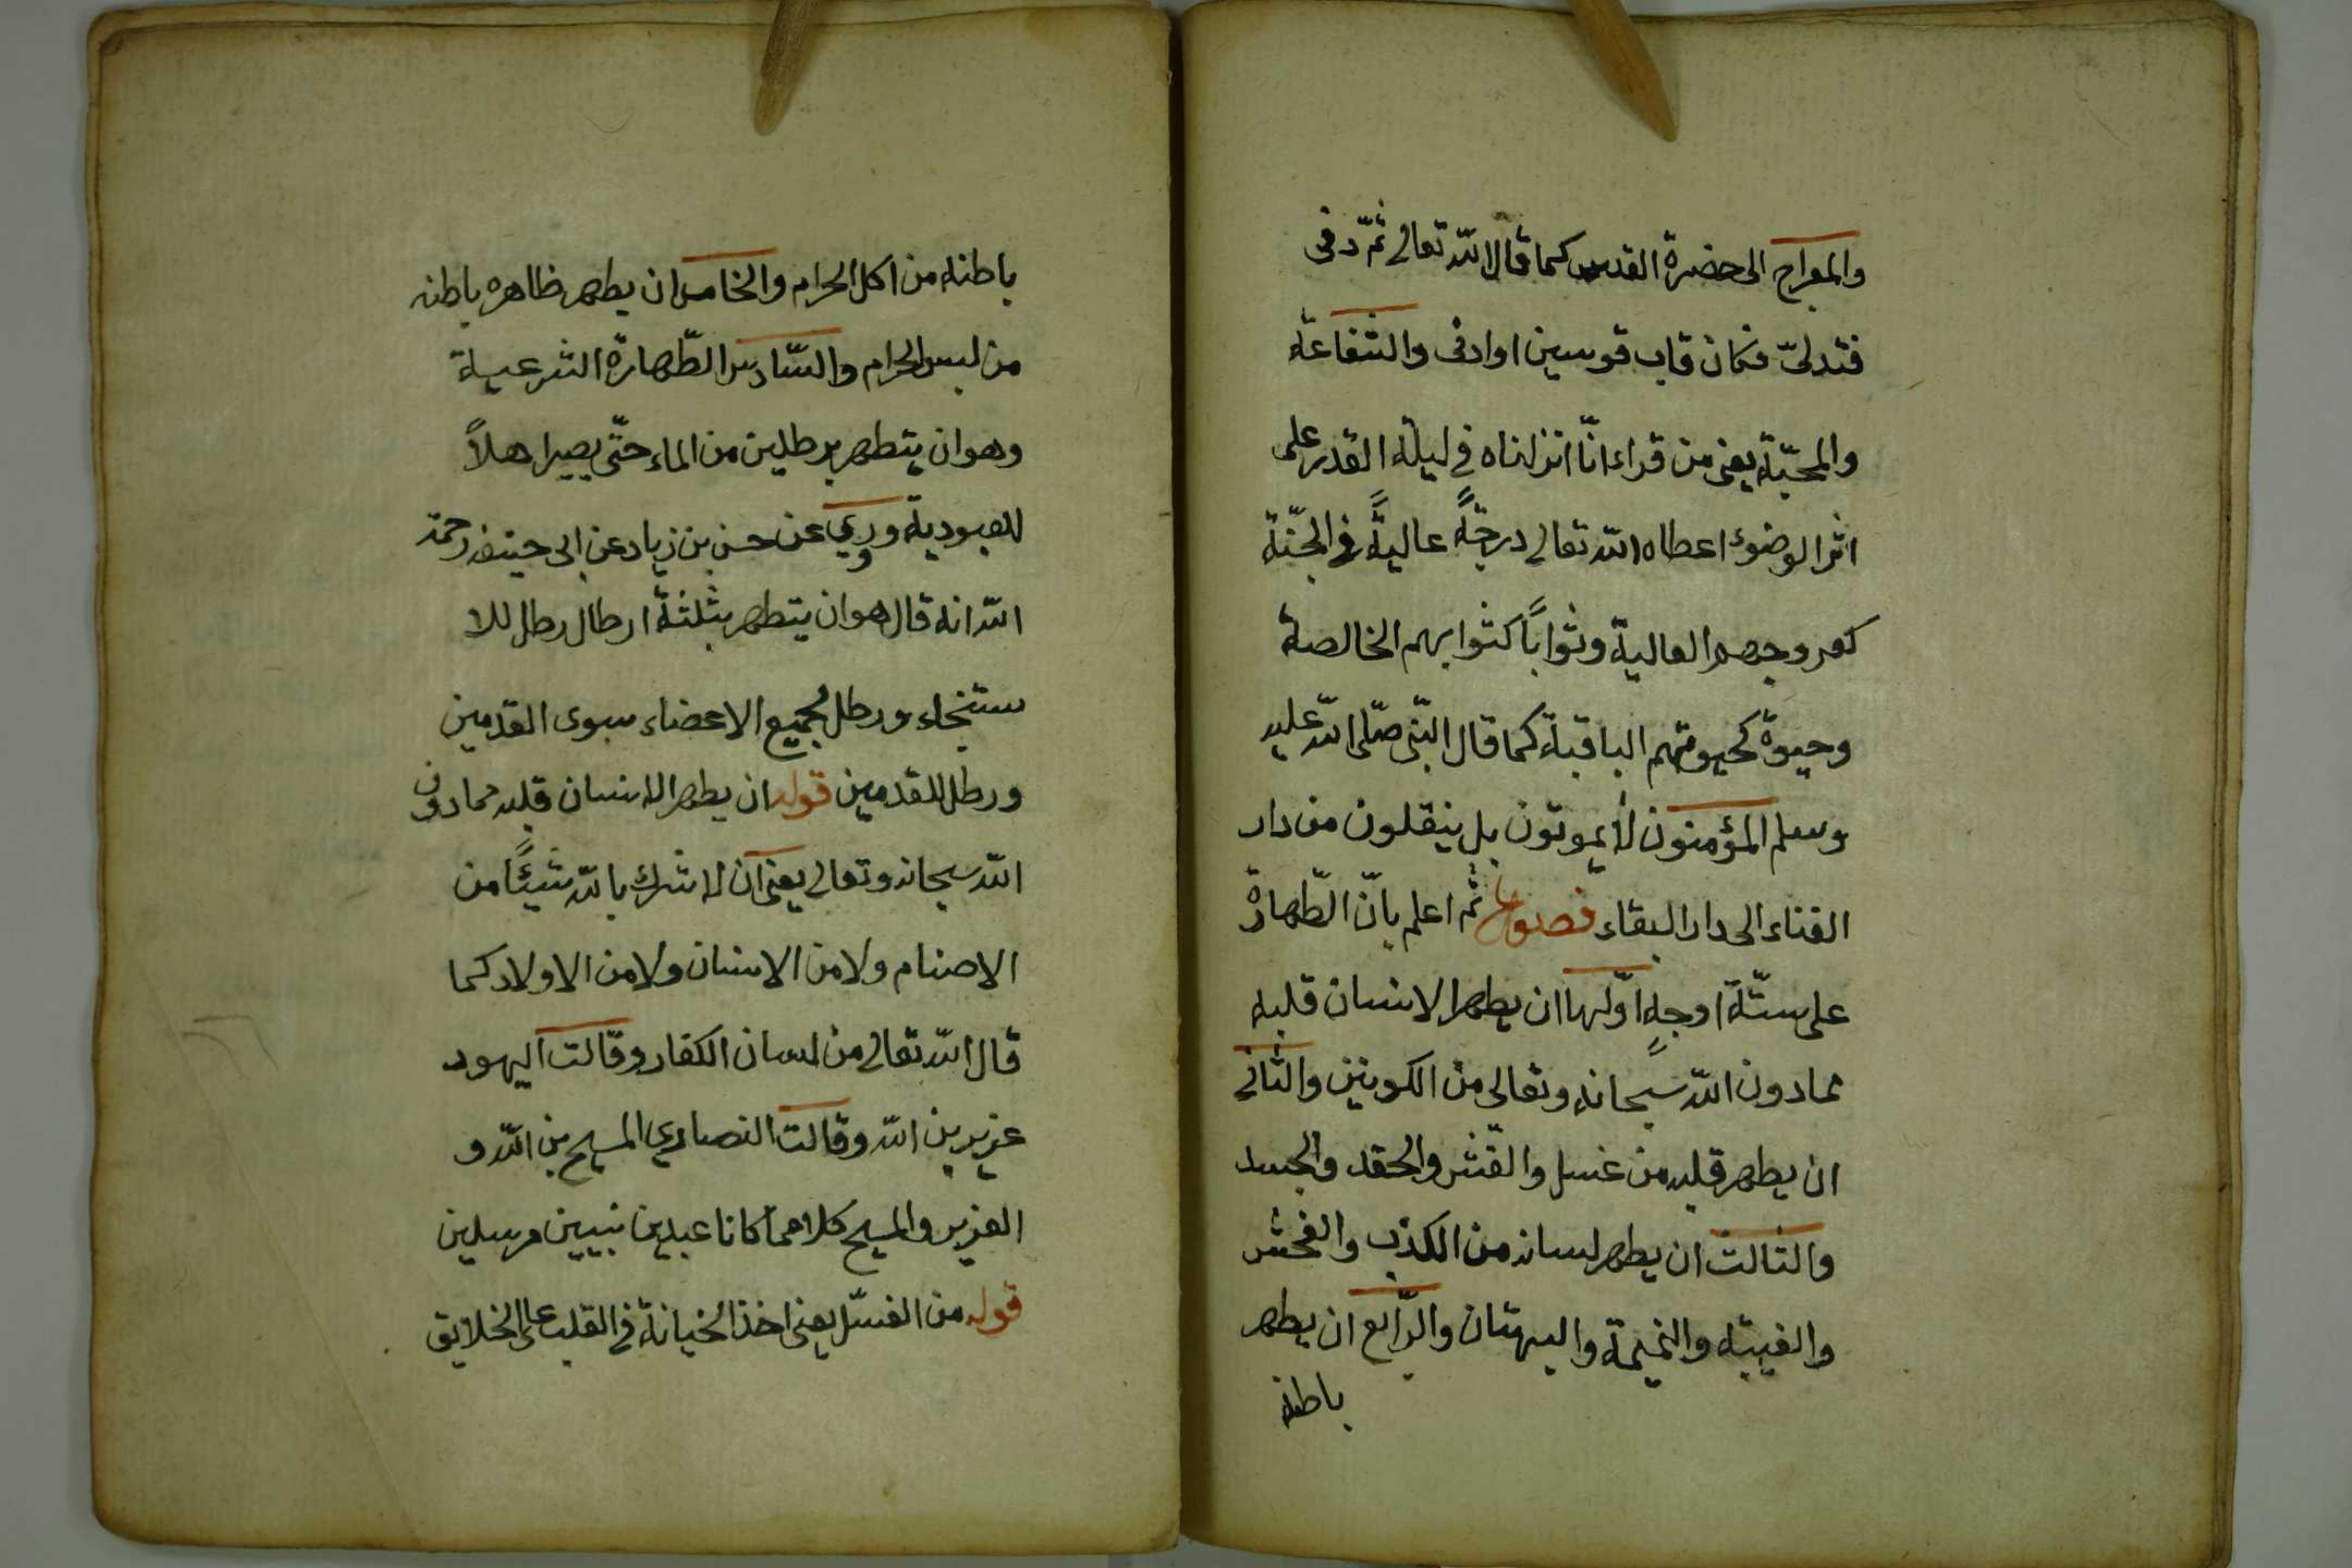 والمعراج الى حضرة القدس كما قال الله تعالى ثمّ دنى
فتدلىّ فكان قاب قوسين او ادنى والشفاعة
والمحبّة يعنى من قراء انّا انزلناه فى ليلة القدر على
اثر الوضوء اعطاه الله تعالى درجةً عاليةً فى الجنّة
العالية وثوابًا كثوابهم الخالصة
وحيوة كحيوتهم الباقية كما قال النبّى صلّى الله عليه
وسلم المؤمنون لا يموتون بل ينقلون من دار
الفناء الى دار البقاء فصل ثم اعلم بانّ الطّهارة
على ستّة اوجهٍ اوّلها ان يطهر الانسان قلبه
عمادون الله سبحانه وتعالى من الكونين والثانى
ان يطهر قلبه من غسل والغّش والحقد والحسد
والثالث ان يطهر لسانه من الكذب والفحش
والغيبة والنميمة والبهتان والرّابع ان يطهر
باطنه
باطنه من اكل الحرام والخامس ان يطهر ظاهره باطنه
من لبس الحرام والسّادس الطّهارة الشرعية
وهو ان يتطهر برطلين من الماء حتّى يصير اهلاً
للعبودية وروي عن حسن بن زياد عن ابى حنيفه رحمة
الله انه قال هو ان يتطهر بثلثة ارطال رطل للا
ستنجاء ورطل لجميع الاعضاء سوى القدمين
ورطل للقدمين قوله ان يطهر الانسان قلبه عمادون
الله سبحانه وتعالى يعنى ان لا شرك بالله شيئًا من
الاصنام ولا من الانسان ولا من الاولاد كما
قال الله تعالى من لسان الكفار وقالت اليهود
عزير بن الله وقالت النصاري المسيح بن الله و
العزير والمسيح كلاهما كانا عبدين نبيين مرسلين
قوله من الغسّل يعنى اخذ الخيانة فى القلب على الخلايق